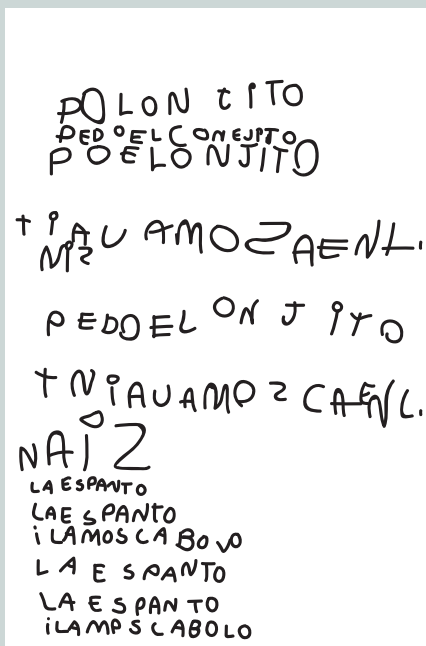 POLON CITO
PED OEL CONEJPTO
POELONJITO
TIAU AMOSAENL.
NIS
PEDOEL ON J ITO
TNIAUAMOS CAENL.
NAIZ
LA ESPANTO
LAE SPANTO
iLAMOSCABOVO
LA E SPANTO
LA E SPAN TO
iLAMPSCABOLO